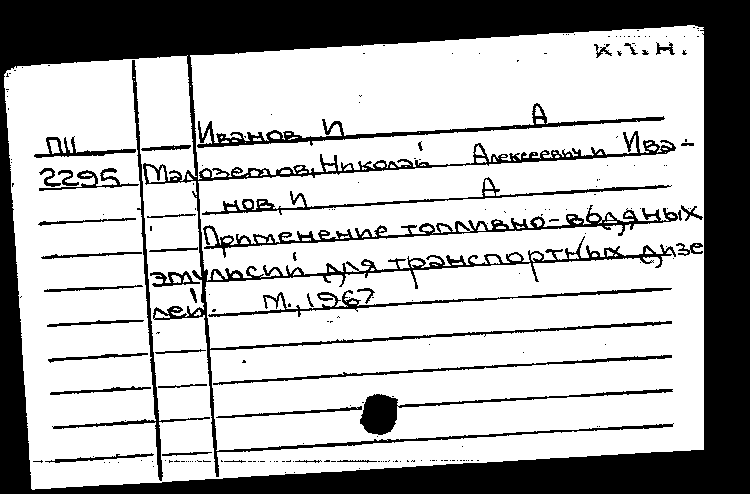 К.Т.Н.
Иванов, И А
П11
2295 Малоземов, Николай Алексеевич и Ива-
нов, И А
Применение топливно-водяных
эмульсий для транспортных дизе
лей. М., 1967